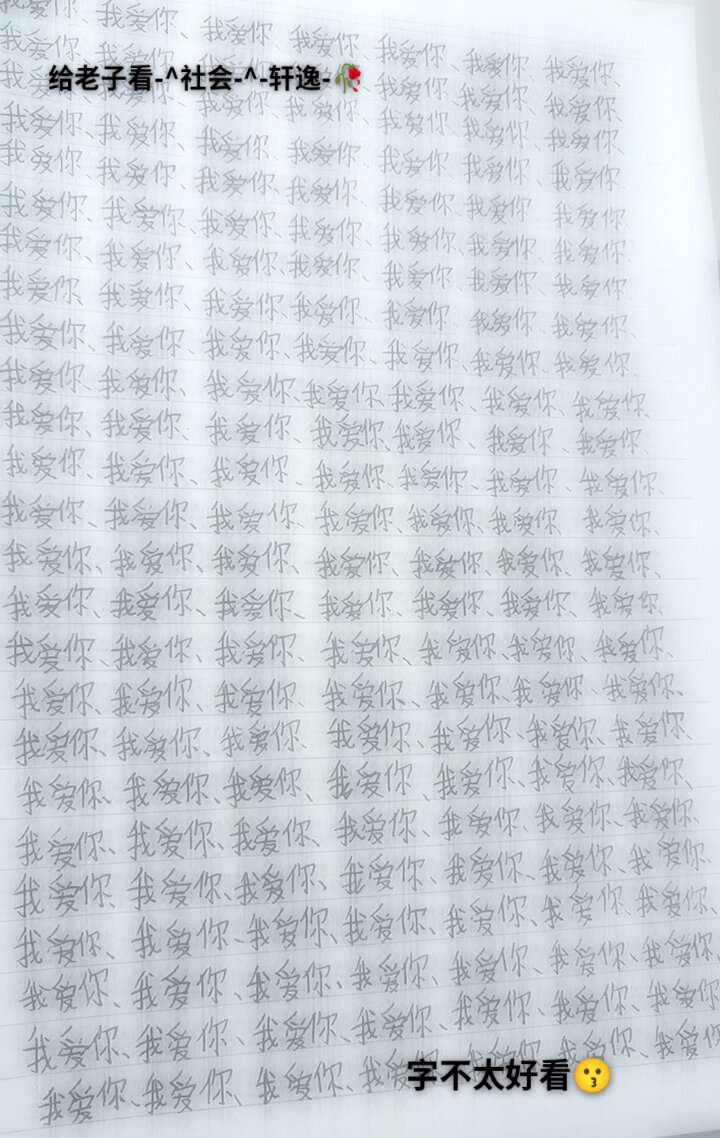 我爱你、我爱你、我爱你、我爱你、我爱你、我爱你、我爱你、
我爱你、我爱你、我爱你、我爱你、我爱你、我爱你、我爱你、
给老子看-^社会-^-轩逸-🥀
我爱你、我爱你、我爱你、我爱你、我爱你、我爱你、我爱你、
我爱你、我爱你、我爱你、我爱你、我爱你、我爱你、我爱你、
我爱你、我爱你、我爱你、我爱你、我爱你、我爱你、我爱你、
我爱你、我爱你、我爱你、我爱你、我爱你、我爱你、我爱你、
我爱你、我爱你、我爱你、我爱你、我爱你、我爱你、我爱你、
我爱你、我爱你、我爱你、我爱你、我爱你、我爱你、我爱你、
我爱你、我爱你、我爱你、我爱你、我爱你、我爱你、我爱你、
我爱你、我爱你、我爱你、我爱你、我爱你、我爱你、我爱你、
我爱你、我爱你、我爱你、我爱你、我爱你、我爱你、我爱你、
我爱你、我爱你、我爱你、我爱你、我爱你、我爱你、我爱你、
我爱你、我爱你、我爱你、我爱你、我爱你、我爱你、我爱你、
我爱你、我爱你、我爱你、我爱你、我爱你、我爱你、我爱你、
我爱你、我爱你、我爱你、我爱你、我爱你、我爱你、我爱你、
我爱你、我爱你、我爱你、我爱你、我爱你、我爱你、我爱你、
我爱你、我爱你、我爱你、我爱你、我爱你、我爱你、我爱你、
我爱你、我爱你、我爱你、我爱你、我爱你、我爱你、我爱你、
我爱你、我爱你、我爱你、我爱你、我爱你、我爱你、我爱你、
我爱你、我爱你、我爱你、我爱你、我爱你、我爱你、我爱你、
我爱你、我爱你、我爱你、我爱你、我爱你、我爱你、我爱你、
我爱你、我爱你、我爱你、我爱你、我爱你、我爱你、我爱你、
我爱你、我爱你、我爱你、我爱你、我爱你、我爱你、我爱你
我爱你、我爱你、我爱你、我爱你、我爱你、我爱你、我爱你
我爱你、我爱你、我爱你、我爱你、我爱你、我爱你、我爱你
字不太好看😗